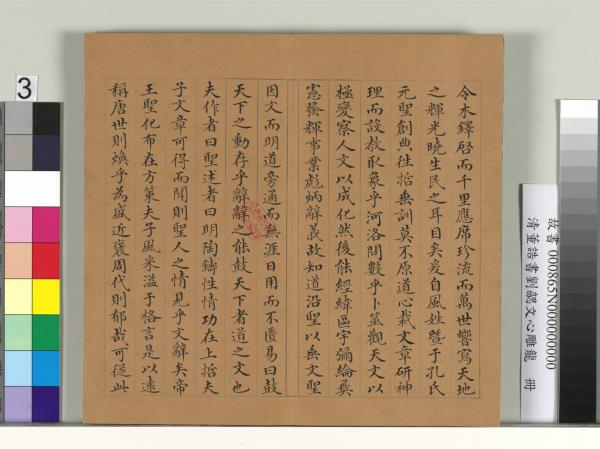 令木鐸启而千里應席珍流而萬世響寫天地
之輝光曉生民之耳目矣爰自風姓暨于孔氏
元聖創典往哲垂訓莫不原道心裁文章研神
理而設教取象乎河洛問數乎卜筮觀天文以
極變察人文以成化然後能經緯區宇彌綸彝
憲發輝事業彪炳辭義故知道沿聖以垂文聖
因文而明道旁通而無涯日用而不匱易曰鼓
天下之動存乎辭辭之能鼓天下者道之文也
夫作者曰聖述者曰明陶鑄性情功在上哲夫
子文章可得而聞則聖人之情見乎文辭矣帝
王聖化布在方策夫子風采溢于格言是以遠
稱唐世則煥乎為盛近褒周代則郁哉可從此
故書 000865N000000000
清董誥書劉勰文心雕龍 冊
3